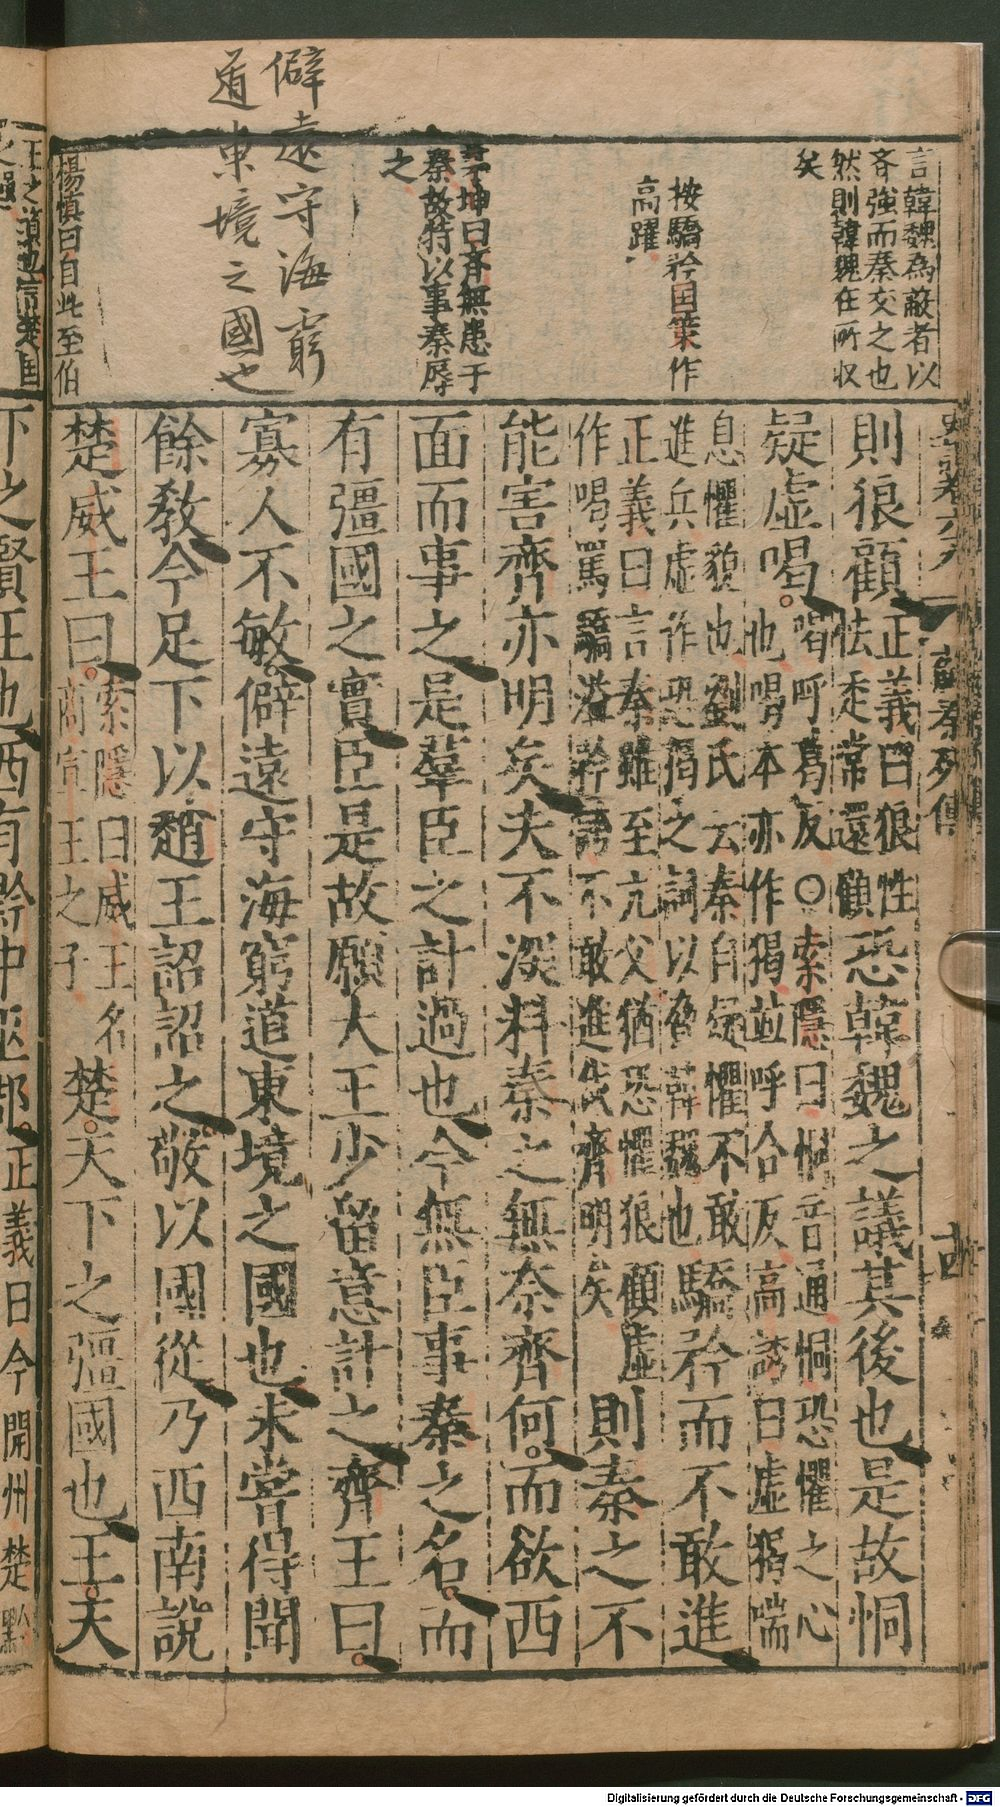 言韓魏為蔽者以
吝強而秦交之也
然則韓魏在所収
矣
按驕矜国策作
高躍
茅坤曰齊無患于
秦故特以事秦辱
之
僻遠守海窮
道東境之國也
楊慎曰自此至伯
蘇秦列傳
則狼顧
正義曰狼性
怯走常還顧
恐韓魏之議其後也是故恫
疑虛喝
喝呼葛反〇索隱曰恫音通恫恐懼之心
也喝本亦作猲並呼合反高誘曰虛猲喘
息懼貌也劉氏云秦自疑懼不敢
進兵虛作恐猲之詞以脅韓魏也
驕矜而不敢進
正義曰言秦雖至亢父猶恐懼狼顧虛
作喝罵驕溢矜誇不敢進伐齊明矣
則秦之不
能害齊亦明矣夫不深料秦之無奈齊何而欲西
面而事之是羣臣之計過也今無臣事秦之名而
有彊國之實臣是故願大王少留意計之齊王曰
寡人不敏僻遠守海窮道東境之國也未嘗得聞
餘教今足下以趙王詔詔之敬以國從乃西南說
楚威王曰
索隱曰威王名
商宣王之子
楚天下之彊國也王天
下之賢王也西有黔中巫郡
正義曰今開州楚黔
Digitalisierung gefördert durch die Deutsche Forschungsgemeinschaft - DFG